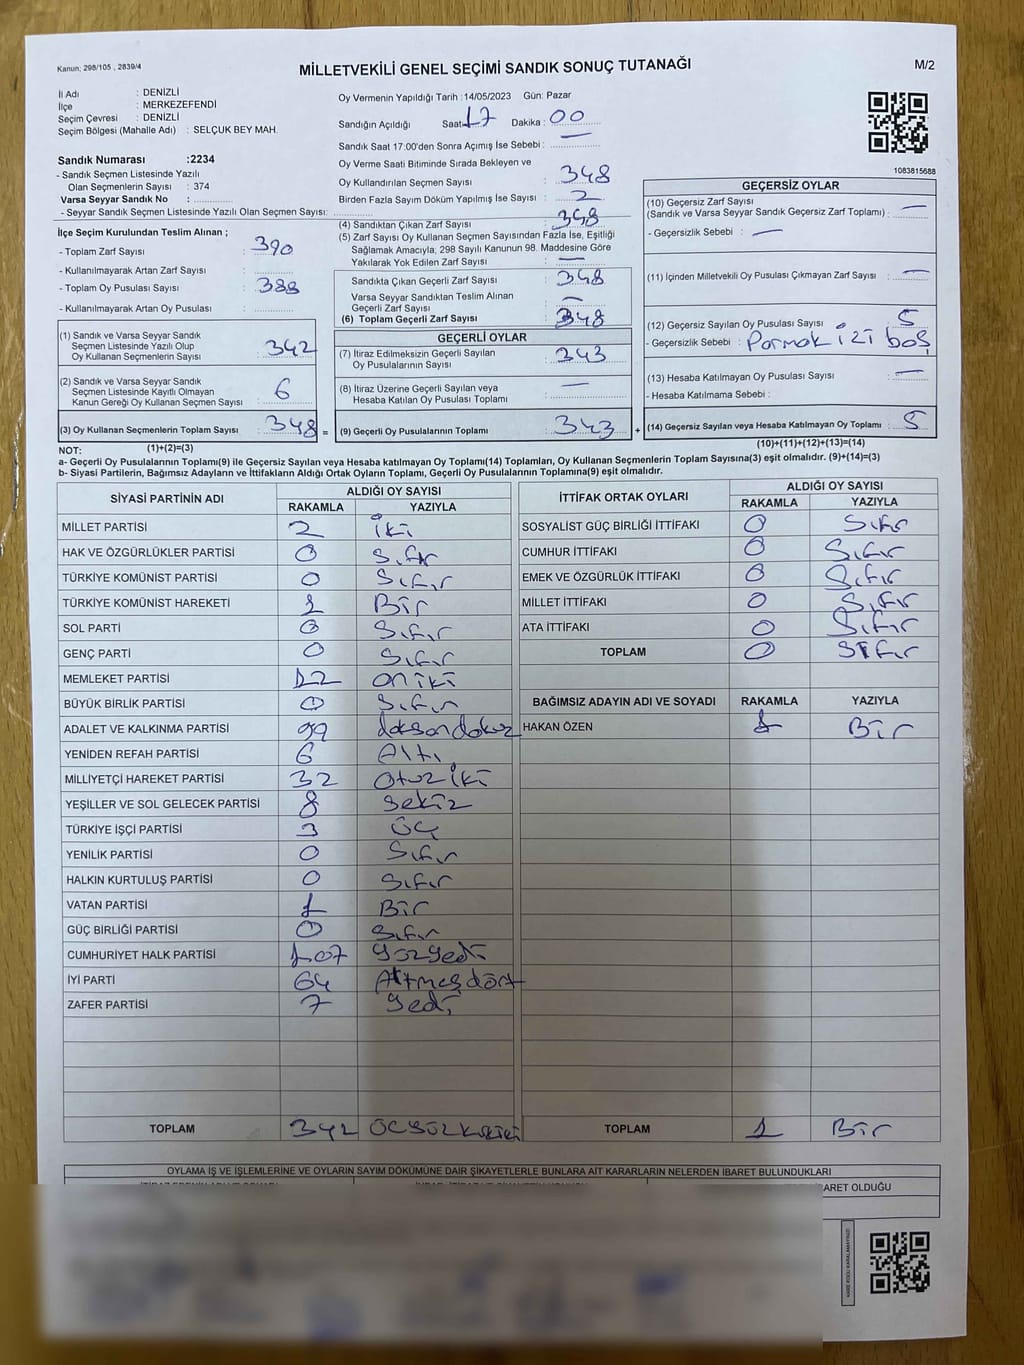 Kanun; 298/105 , 2839/4
MİLLETVEKİLİ GENEL SEÇİMİ SANDIK SONUÇ TUTANAĞI
M/2
İl Adı : DENİZLİ
İlçe : MERKEZEFENDİ
Seçim Çevresi : DENİZLİ
Seçim Bölgesi (Mahalle Adı) : SELÇUK BEY MAH.
Sandık Numarası :2234
- Sandık Seçmen Listesinde Yazılı
Olan Seçmenlerin Sayısı : 374
Varsa Seyyar Sandık No :
- Seyyar Sandık Seçmen Listesinde Yazılı Olan Seçmen Sayısı:
Oy Vermenin Yapıldığı Tarih :14/05/2023 Gün: Pazar
Sandığın Açıldığı Saat: 17 Dakika : 00
Sandık Saat 17:00'den Sonra Açımış İse Sebebi : —
Oy Verme Saati Bitiminde Sırada Bekleyen ve
Oy Kullandırılan Seçmen Sayısı : 348
Birden Fazla Sayım Döküm Yapılmış İse Sayısı : 2
1083815688
İlçe Seçim Kurulundan Teslim Alınan ;
- Toplam Zarf Sayısı : 390
- Kullanılmayarak Artan Zarf Sayısı :
- Toplam Oy Pusulası Sayısı : 388
- Kullanılmayarak Artan Oy Pusulası :
(1) Sandık ve Varsa Seyyar Sandık
Seçmen Listesinde Yazılı Olup
Oy Kullanan Seçmenlerin Sayısı : 342
(2) Sandık ve Varsa Seyyar Sandık
Seçmen Listesinde Kayıtlı Olmayan
Kanun Gereği Oy Kullanan Seçmen Sayısı : 6
(3) Oy Kullanan Seçmenlerin Toplam Sayısı : 348 =
(4) Sandıktan Çıkan Zarf Sayısı : 348
(5) Zarf Sayısı Oy Kullanan Seçmen Sayısından Fazla İse, Eşitliği
Sağlamak Amacıyla, 298 Sayılı Kanunun 98. Maddesine Göre
Yakılarak Yok Edilen Zarf Sayısı : —
Sandıkta Çıkan Geçerli Zarf Sayısı : 348
Varsa Seyyar Sandıktan Teslim Alınan
Geçerli Zarf Sayısı : —
(6) Toplam Geçerli Zarf Sayısı : 348
GEÇERLİ OYLAR
(7) İtiraz Edilmeksizin Geçerli Sayılan
Oy Pusulalarının Sayısı : 343
(8) İtiraz Üzerine Geçerli Sayılan veya
Hesaba Katılan Oy Pusulası Toplamı : —
(9) Geçerli Oy Pusulalarının Toplamı : 343 +
GEÇERSİZ OYLAR
(10) Geçersiz Zarf Sayısı
(Sandık ve Varsa Seyyar Sandık Geçersiz Zarf Toplamı) : —
- Geçersizlik Sebebi : —
(11) İçinden Milletvekili Oy Pusulası Çıkmayan Zarf Sayısı : —
(12) Geçersiz Sayılan Oy Pusulası Sayısı : 5
- Geçersizlik Sebebi : Parmak izi boş
(13) Hesaba Katılmayan Oy Pusulası Sayısı : —
- Hesaba Katılmama Sebebi :
(14) Geçersiz Sayılan veya Hesaba Katılmayan Oy Toplamı : 5
NOT: (1)+(2)=(3)
(10)+(11)+(12)+(13)=(14)
a- Geçerli Oy Pusulalarının Toplamı(9) ile Geçersiz Sayılan veya Hesaba katılmayan Oy Toplamı(14) Toplamları, Oy Kullanan Seçmenlerin Toplam Sayısına(3) eşit olmalıdır. (9)+(14)=(3)
b- Siyasi Partilerin, Bağımsız Adayların ve İttifakların Aldığı Ortak Oyların Toplamı, Geçerli Oy Pusulalarının Toplamına(9) eşit olmalıdır.
SİYASİ PARTİNİN ADI ALDIĞI OY SAYISI
RAKAMLA YAZIYLA
MİLLET PARTİSİ 2 iki
HAK VE ÖZGÜRLÜKLER PARTİSİ 0 Sıfır
TÜRKİYE KOMÜNİST PARTİSİ 0 Sıfır
TÜRKİYE KOMÜNİST HAREKETİ 1 Bir
SOL PARTİ 0 Sıfır
GENÇ PARTİ 0 Sıfır
MEMLEKET PARTİSİ 12 on iki
BÜYÜK BİRLİK PARTİSİ 0 Sıfır
ADALET VE KALKINMA PARTİSİ 99 doksan dokuz
YENİDEN REFAH PARTİSİ 6 Altı
MİLLİYETÇİ HAREKET PARTİSİ 32 otuz iki
YEŞİLLER VE SOL GELECEK PARTİSİ 8 Sekiz
TÜRKİYE İŞÇİ PARTİSİ 3 Üç
YENİLİK PARTİSİ 0 Sıfır
HALKIN KURTULUŞ PARTİSİ 0 Sıfır
VATAN PARTİSİ 1 Bir
GÜÇ BİRLİĞİ PARTİSİ 0 Sıfır
CUMHURİYET HALK PARTİSİ 107 yüzyedi
İYİ PARTİ 64 Altmışdört
ZAFER PARTİSİ 7 yedi
TOPLAM 342
İTTİFAK ORTAK OYLARI ALDIĞI OY SAYISI
RAKAMLA YAZIYLA
SOSYALİST GÜÇ BİRLİĞİ İTTİFAKI 0 Sıfır
CUMHUR İTTİFAKI 0 Sıfır
EMEK VE ÖZGÜRLÜK İTTİFAKI 0 Sıfır
MİLLET İTTİFAKI 0 Sıfır
ATA İTTİFAKI 0 Sıfır
TOPLAM 0 Sıfır
BAĞIMSIZ ADAYIN ADI VE SOYADI RAKAMLA YAZIYLA
HAKAN ÖZEN 1 Bir
TOPLAM 1 Bir
OYLAMA İŞ VE İŞLEMLERİNE VE OYLARIN SAYIM DÖKÜMÜNE DAİR ŞİKAYETLERLE BUNLARA AİT KARARLARIN NELERDEN İBARET BULUNDUKLARI
BARET OLDUĞU